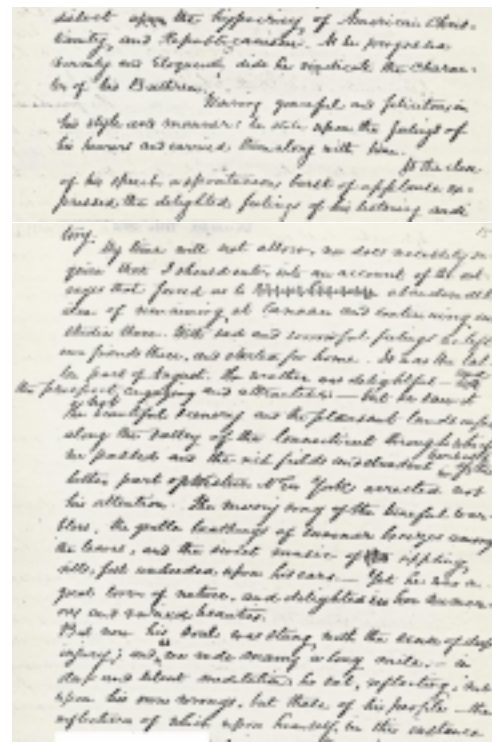 upon the hypocrisy of American Chris-
tianity, and Republicanism. As he progressed
and Eloquently did he vindicate the charac-
ter of his Brethren.
Winning graceful and felicitous in
his style and manner: he stole upon the feelings of
his hearers and carried them along with him.
At the close
of his speech a spontaneous burst of applause ex-
pressed the delighted feelings of his listening audi
tory.
My time will not allow, nor does necessity re-
quire that I should enter into an account of the out-
rages that forced us to abandon all
idea of remaining at Canaan and continuing our
studies there. With sad and sorrowful feelings we left
our friends there, and started for home. It was the lat
ter part of August. The weather was delightful —
the prospect engaging and attractive — but he saw it
not
The beautiful scenery and the pleasant landscapes
along the valley of the Connecticut through which
we passed and the rich fields and
latter part of Western New York arrested not
his attention. The morning song of the tuneful war-
blers, the gentle breathings of summer breezes among
the leaves, and the sweet music of rippling
rills, fell unheeded upon his ears. — Yet he was a
great lover of nature, and delighted in her numer-
ous and varied beauties.
But now his soul was stung with the sense of deep
injury; and, as we rode many a long mile — in
deep and silent meditation he sat, reflecting, not
upon his own wrongs, but those of his people — the
reflections of which upon himself in this instance